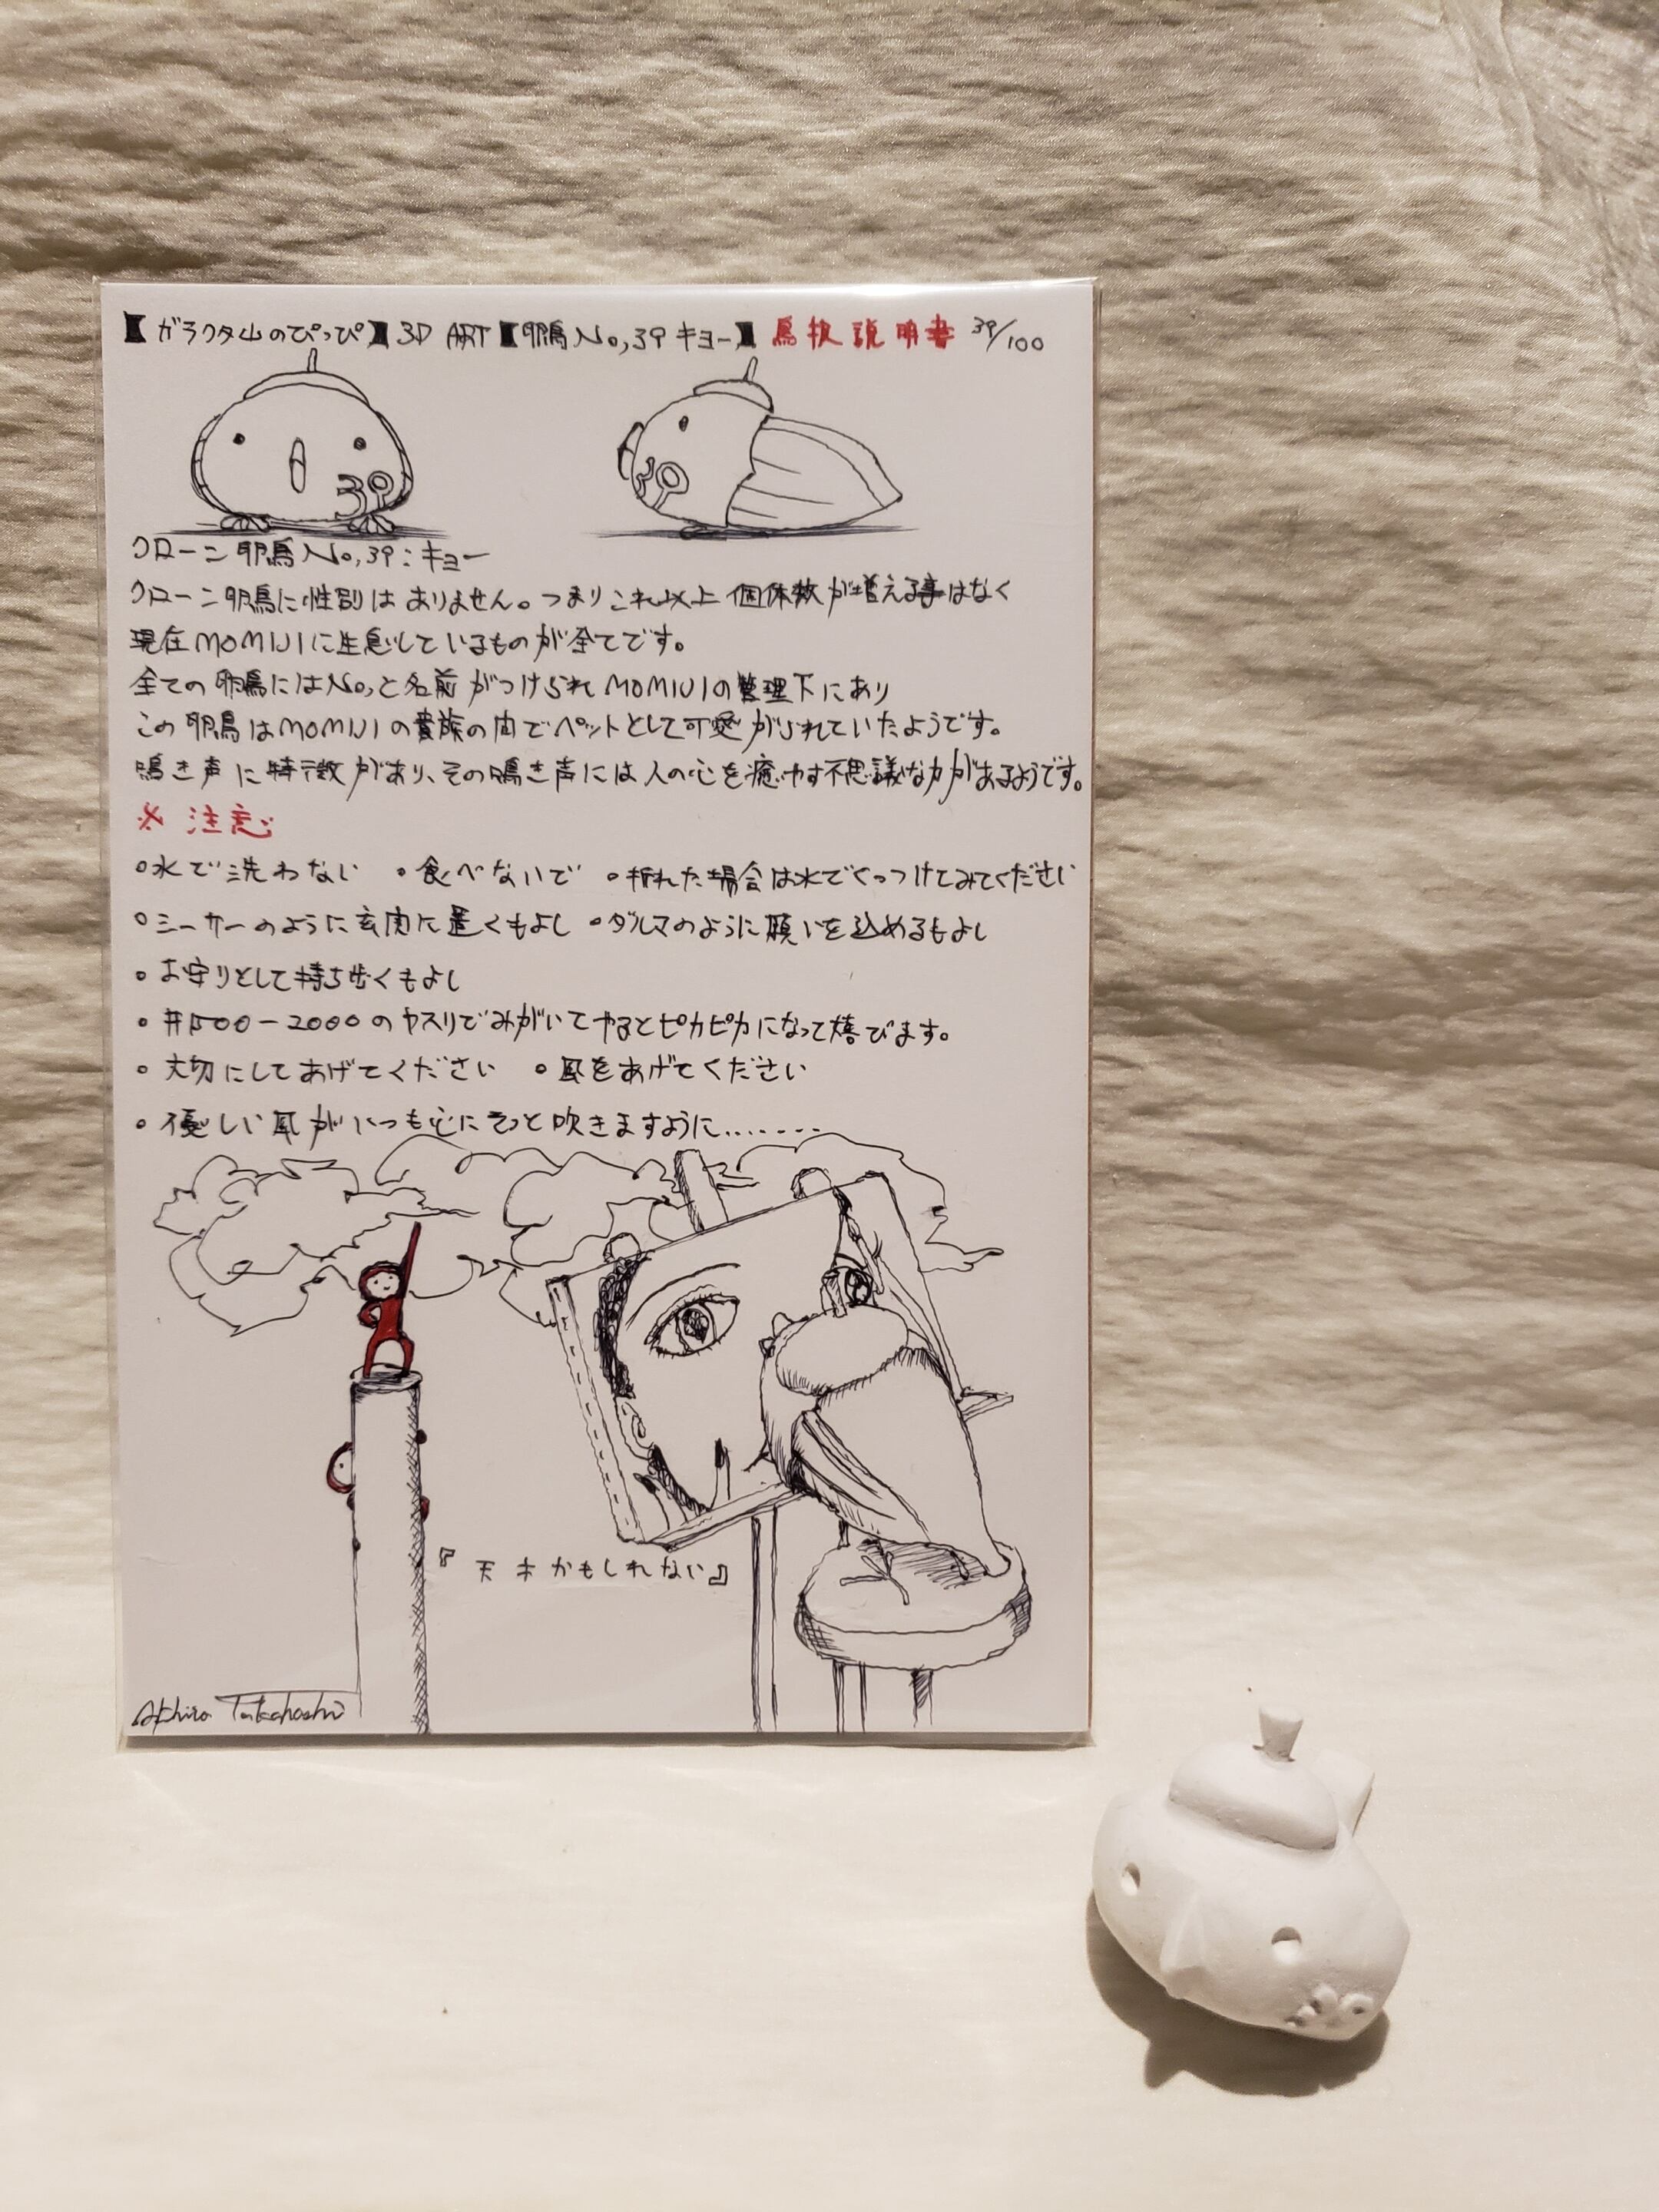 【ガラクタ山のぴっぴ】3D ART【卵鳥No,39 キョー】鳥扱説明書 39/100
39
39
クローン卵鳥No,39:キョー
クローン卵鳥に性別はありません。つまりこれ以上個体数が増える事はなく
現在MOMIJIに生息しているものが全てです。
全ての卵鳥にはNo,と名前がつけられMOMIJIの管理下にあり
この卵鳥はMOMIJIの貴族の間でペットとして可愛がられていたようです。
鳴き声に特徴があり、その鳴き声には人の心を癒やす不思議な力があるようです。
※ 注意
・水で洗わない ・食べないで ・折れた場合は水でくっつけてみてください
・シーサーのように玄関に置くもよし ・ダルマのように願いを込めるもよし
・お守りとして持ち歩くもよし
・#1500-2000のヤスリでみがいてやるとピカピカになって喜びます。
・大切にしてあげてください ・風をあげてください
・優しい風がいつも心にそっと吹きますように.......
『天才かもしれない』
Akihiro Takahashi
39